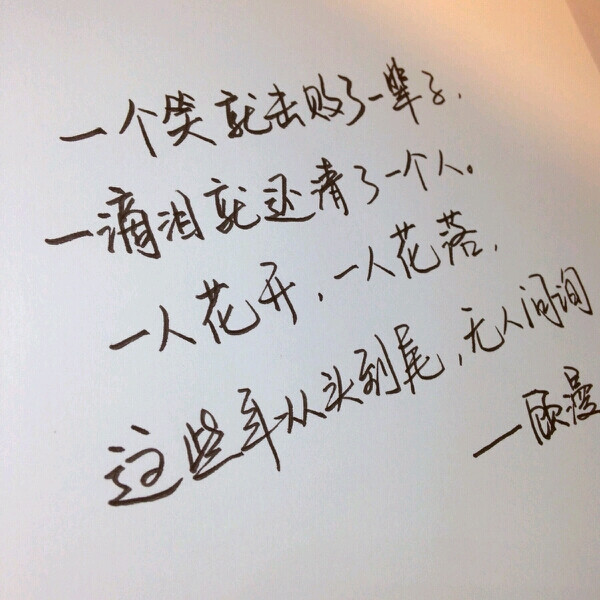 一个笑就击败了一辈子，
一滴泪就还清了一个人。
一人花开，一人花落，
这些年从头到尾，无人问询
—顾漫